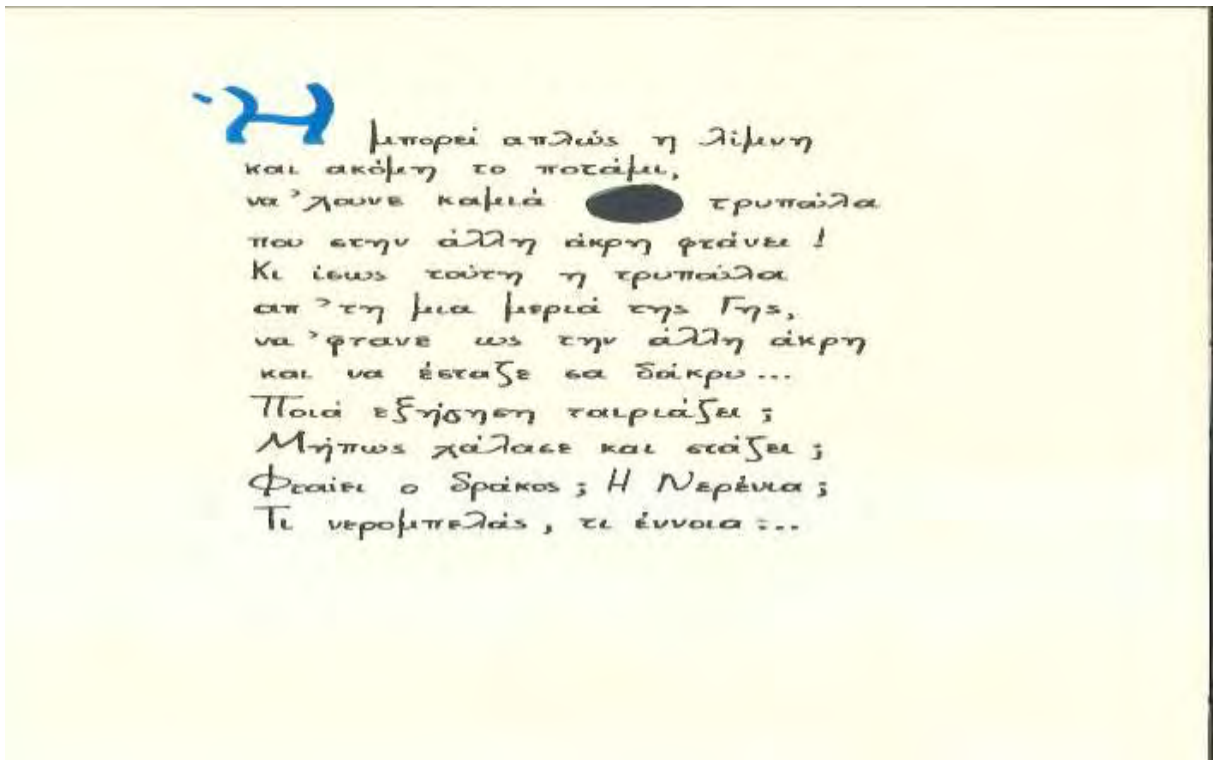 Ή μπορεί απλώς η λίμνη
και ακόμη το ποτάμι,
να 'χουνε καμιά τρυπούλα
που στην άλλη άκρη φτάνει !
Κι ίσως τούτη η τρυπούλα
απ 'τη μια μεριά της Γης,
να 'φτανε ως την άλλη άκρη
και να έσταζε σα δάκρυ...
Ποιά εξήγηση ταιριάζει ;
Μήπως χάλασε και στάζει ;
Φταίει ο δράκος ; Η Νερένια ;
Τι νερομπελάς, τι έννοια :...